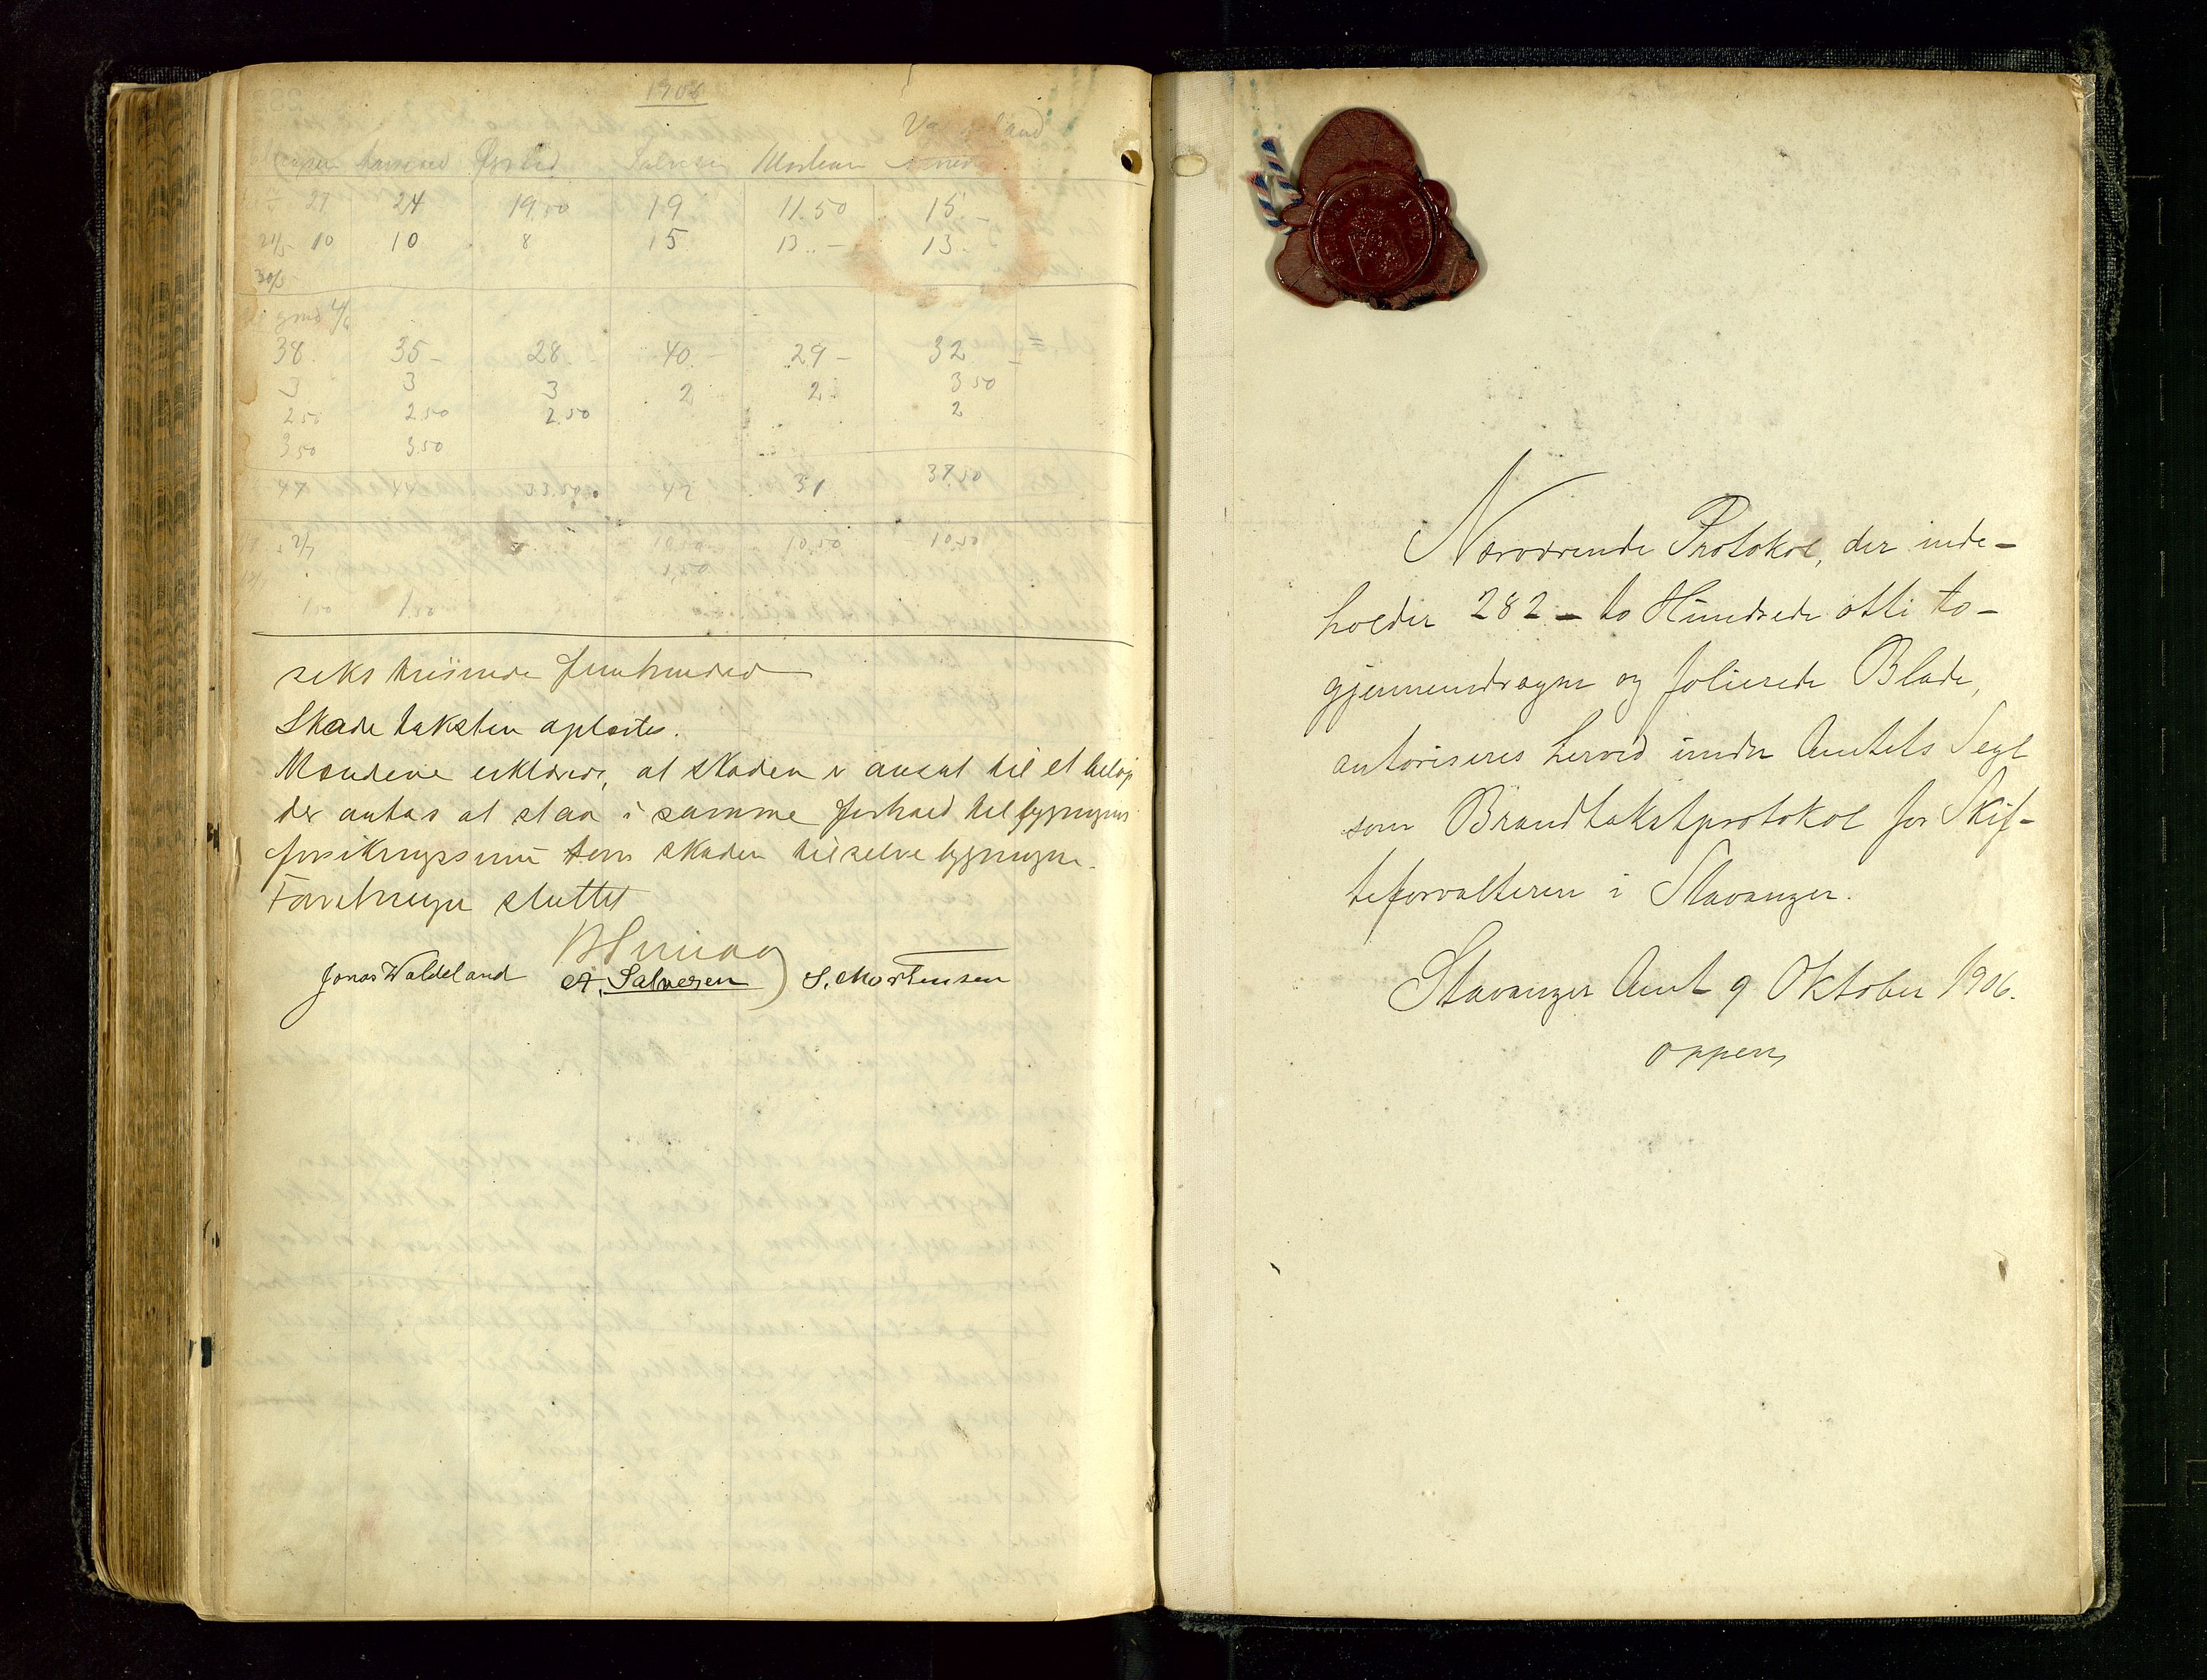 1906
Salvesen
24 19.50 19 11.50 15.-
21/5 10 10 8 15 13.- 13.
30/5
38. 35- 28.- 40.- 29- 32 =
3 3 3 2 2 3 50
2 50 2.50 2.50 2
3.50 3.50
44 44 33.50 42 31 37.50
10.50 10.50 10.50
1.50
1 50 1.50
seks tusinde femhundred
Skadetaksten oplæstes.
Mændene erklærer, at skaden er ansat til et beløp
der antas at staa i samme forhold til bygningens
forsikringssum som skaden til selve bygningen.
Forretningen sluttet
Jonas Waldeland A. Salvesen S. Mortensen
Nærværende Protokol, der inde-
holder 282 - to Hundrede otti to -
gjennemdragne og folierede Blade,
autoriseres herved under Amtets Segl
som Brandtakstprotokol for Skif-
teforvalteren i Stavanger.
Stavanger Amt 9 Oktober 1906.
Oppen